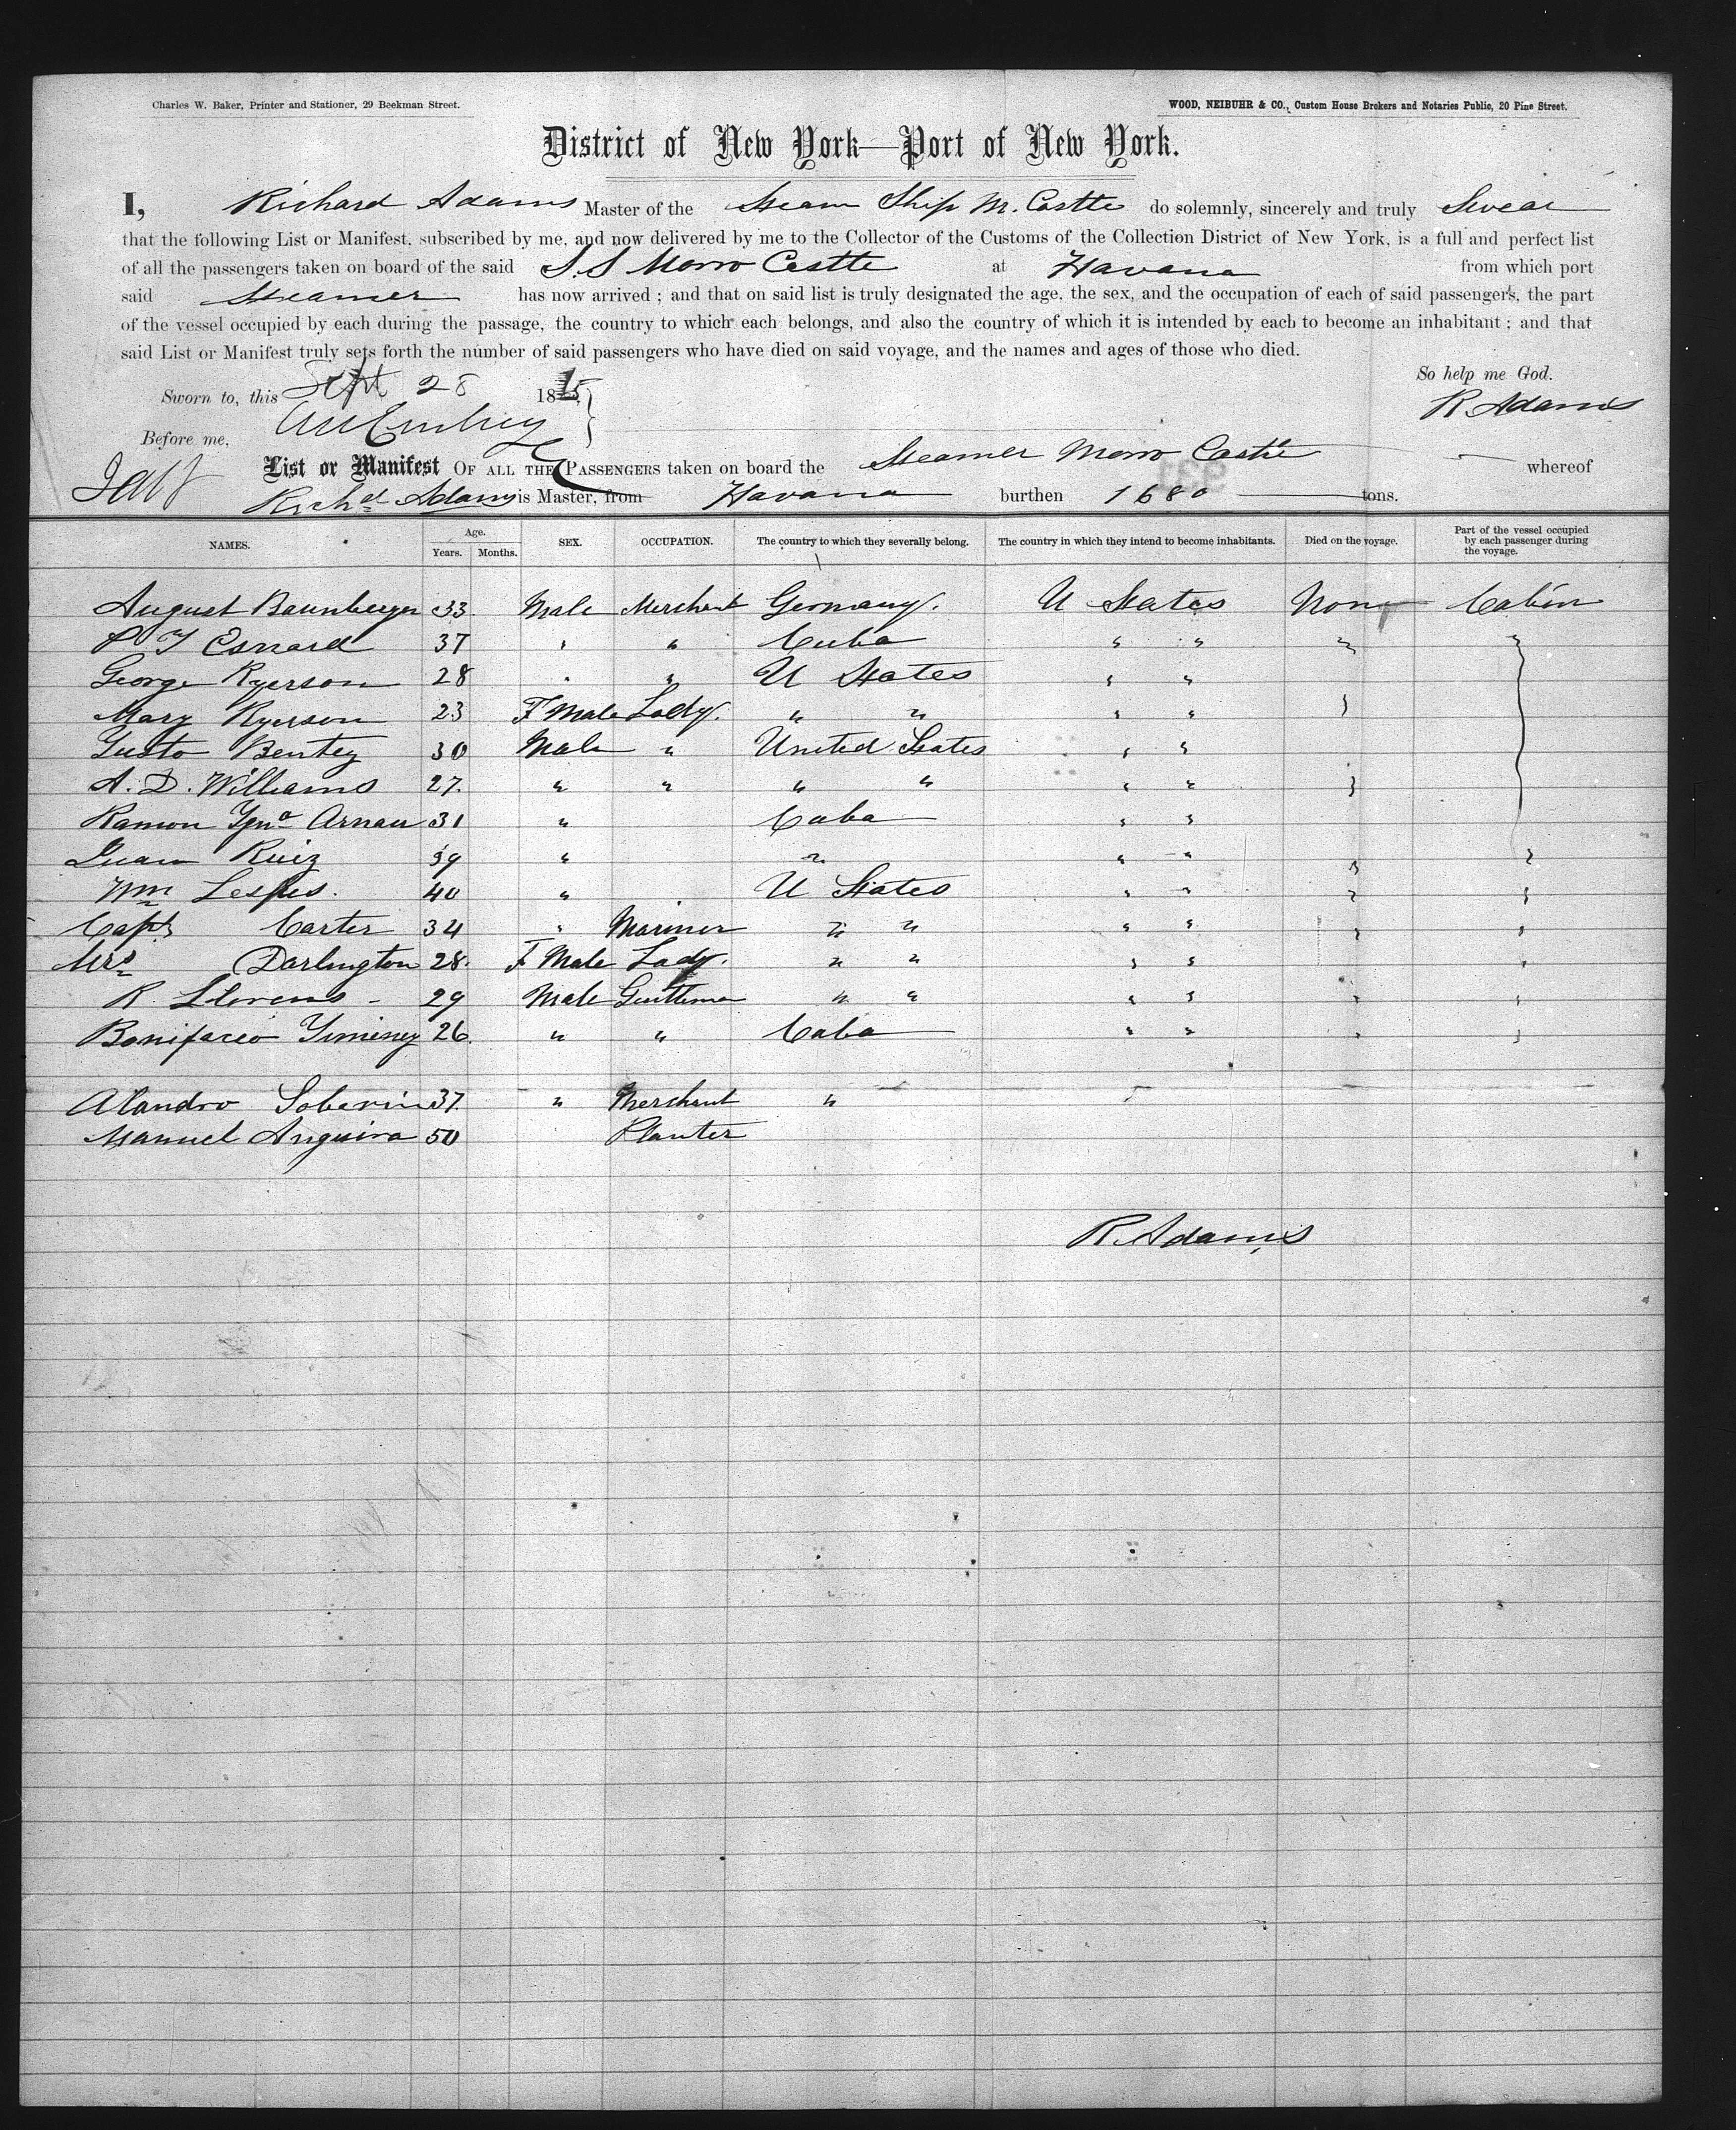 Charles W. Baker, Printer and Stationer, 29 Beekman Street. WOOD, NEIBUHR & CO., Custom House Brokers and Notaries Public, 20 Pine Street.
District of New York—Port of New York.
I, Richard Adams Master of the Steam Ship M. Castle do solemnly, sincerely and truly Swear
that the following List or Manifest, subscribed by me, and now delivered by me to the Collector of the Customs of the Collection District of New York, is a full and perfect list
of all the passengers taken on board of the said S.S Morro Castle at Havana from which port
said Steamer has now arrived ; and that on said list is truly designated the age, the sex, and the occupation of each of said passengers, the part
of the vessel occupied by each during the passage, the country to which each belongs, and also the country of which it is intended by each to become an inhabitant ; and that
said List or Manifest truly sets forth the number of said passengers who have died on said voyage, and the names and ages of those who died.
So help me God.
Sworn to, this Sept 28 18
R. Adams
Before me,
List or Manifest OF ALL THE PASSENGERS taken on board the Steamer Morro Castle whereof
Richd Adams is Master, from Havana burthen 1680 tons.
NAMES. Age. Years. Months. SEX. OCCUPATION. The country to which they severally belong. The country in which they intend to become inhabitants. Died on the voyage. Part of the vessel occupied by each passenger during the voyage.
August 33 Male Merchant Germany. U States None Cabin
P Y Esnard 37 " " Cuba " " "
George Ryerson 28 " " U States " "
Mary Ryerson 23 F Male Lady. " " " " "
Justo Bentez 30 Male " United States " "
A. D. Williams 27. " " " " " " "
Ramon Ygno Arnau 31 " Cuba " "
Juan Ruiz 39 " " " " " "
Wm 40 " U States " " " "
Capt Carter 34 " Mariner " " " " " "
Mrs Darlington 28. F Male Lady. " " " " "
R. Llorens - 29 Male Gentleman " " " " " "
Bonifacio Yiminez 26. " " Cuba " " " "
Alandro Soberin 37. " Merchant "
Manuel Anguira 50 Planter
R. Adams